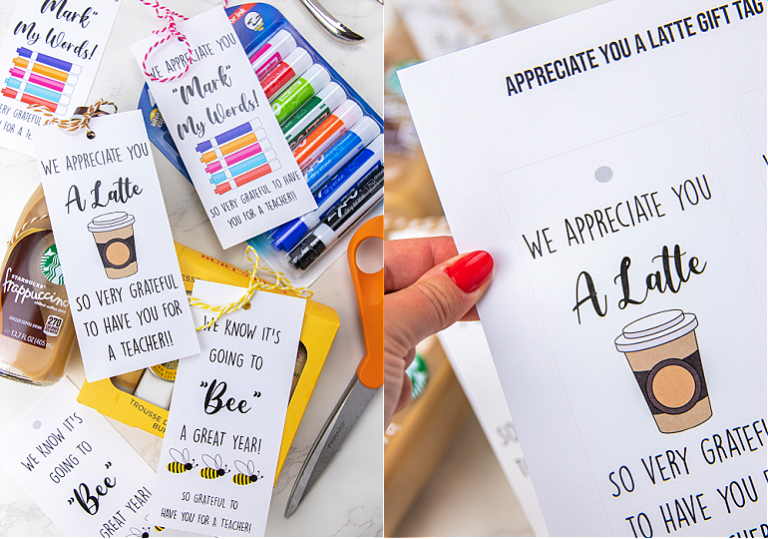 Mark"
My Words!
VERY GRATEFUL
YOU FOR A
WE APPRECIATE YOU
"Mark"
My Words!
SO VERY GRATEFUL TO HAVE
YOU FOR A TEACHER!!
WE APPRECIATE YOU
A Latte
SO VERY GRATEFUL
TO HAVE YOU FOR
A TEACHER!!
STARBUCKS
frappuccino
270
13.7 fl
WE KNOW IT'S
GOING TO
"Bee"
A GREAT YEAR!
SO GRATEFUL TO
HAVE YOU FOR A TEACHER!
TROUSSE
WE KNOW IT'S
GOING TO
"Bee"
GREAT YEAR!
APPRECIATE YOU A LATTE GIFT TAG
WE APPRECIATE YOU
A Latte
SO VERY GRATEFU
TO HAVE YOU F